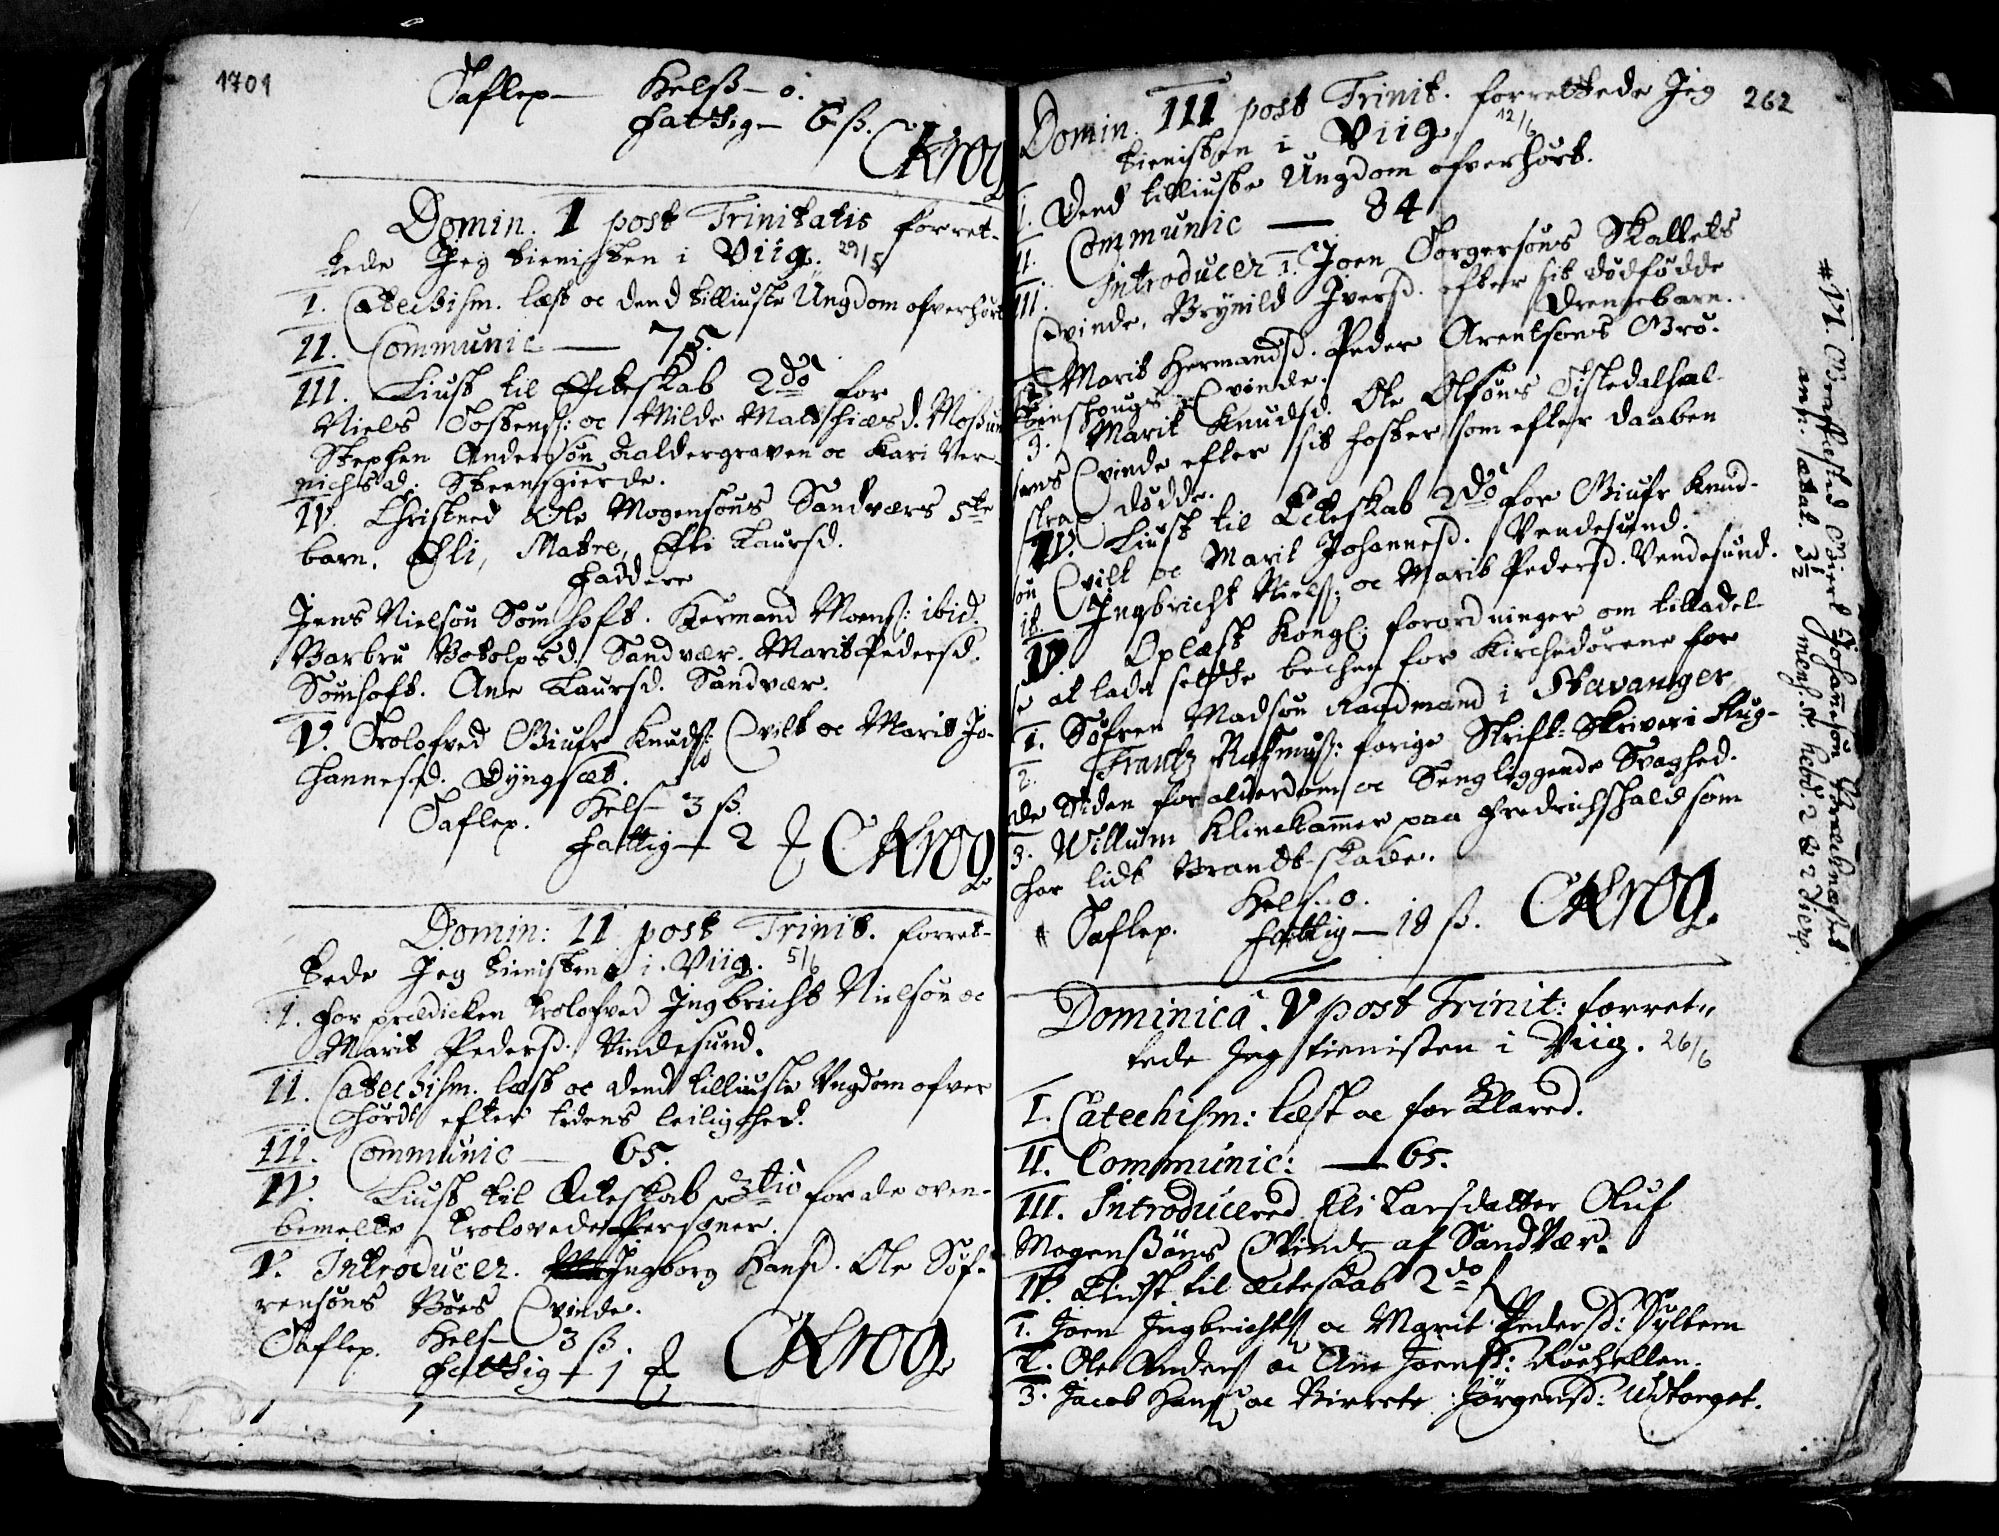 1701
Taflep— Kels— 0.
fattig— 6 ß.
CKrog
Domin. I post Trinitatis forret-
tede Jeg tienisten i Viig. 29/5
I. Catechism. læst oc dend tilliuste Ungdom ofverhört
II. Communic — 75.
III. Liust til Ecteskab 2do for
Niels Tostens: oc Milde Matthiæsd.
Stephen Andersøn Kaldergraven oc Kari Ver-
nichsd: Steensgierde.
IV. Christned Ole Mogensöns Sandværs 5te
barn. Elli, Matre, Elli Laursd.
Faddere
Jens Nielsøn Sømhoft. Hermand Moens: ibid.
Barbru Botolpsd. Sandvær. Marit Pedersd.
Sømhoft. Ane Laursd. Sandvær.
V. Trolofved Giufr Knuds: Qvilt oc Marit Jo-
hannesd. Dyngsæt.
Taflep. Kels— 3 ß.
fattig— 2
CKrog
Domin: II post Trinit. forret-
tede Jeg tienisten i Viig. 5/6
I. for prædicken trolofved Ingbricht Nielsøn oc
Marit Pedersd: Vindesund.
II. Catechism. læst oc dend tilliuste Ungdom ofver
hørdt efter tidens leilighed.
III. Communic — 65.
IV. Liust til Ecteskab 3tio for de oven-
bemelte trolovede Personer.
V. Introducer. Ingborg Hansd. Ole Söf-
rensöns Böes Qvinde.
Taflep. Kels— 3 ß
fattig— 1
CKrog
262
Domin. III post Trinit. forrettede Jeg
tienisten i Viig. 12/6
I. Dend tilliuste Ungdom ofverhört.
II. Communic — 84
III. Introducer 1. Joen Torgersöns Skallets
Qvinde, Brynild Iversd. efter sit dödfödde
Drengebarn.
2. Marit Hermandsd. Peder Arentsöns Grö-
tenshougs Qvinde.
3. Marit Knudsd. Ole Olsöns Tisledalshal-
sens Qvinde efter sit foster som efter daaben
strax dödde.
IV. Liust til Ecteskab 2do for Giufr Knud-
søn Qvilt oc Marit Johannesd.
Ingbricht Niels: oc Marit Pedersd. Vendesund.
V. Oplæst Kongl: forordninger om tilladel-
se at lade sette becken for Kirchedörene for
1. Söfren Madsøn Raadmand i Stavanger
2. Frantz Rasmuss: forige Skrift-Skriver i
de Siden for alderdom oc Sengliggende Svaghed.
3. Willum Klinckammer paa Fredrichshald som
har lidt Brandt-skade.
# Taflep. Kels. 0.
fattig— 18 ß.
CKrog.
# VI.
Dominica V post Trinit: forret„
tede Jeg tienisten i Viig. 26/6
I. Catechism: læst oc for Klared.
II. Communic: — 65.
III. Introducered Elli Larsdatter Oluf
Mogenßöns Qvinde af SandVær.
IV. Liust til Ecteskab 2do
1. Joen Ingbrichts oc Marit Pedersd: Sÿltern
2. Ole Anders oc Ane Joensd: Röehellen.
3. Jacob Hans oc Birrete Jörgensd: Udtorget.